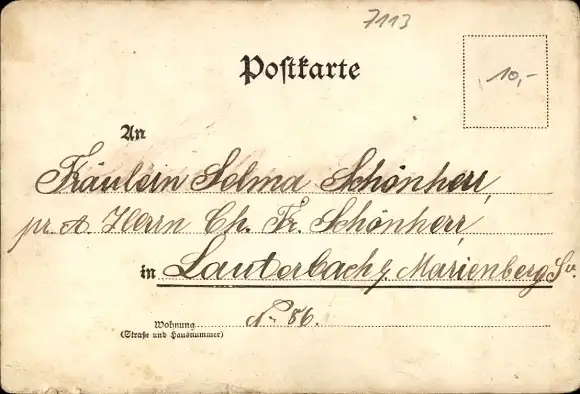 7113
Postkarte
10,-
An
Fräulein Selma Schönherr,
pr. A Herrn Ch. Fr. Schönherr,
in Lauterbach b. Marienberg
N. 56.
Wohnung
(Straße und Hausnummer)